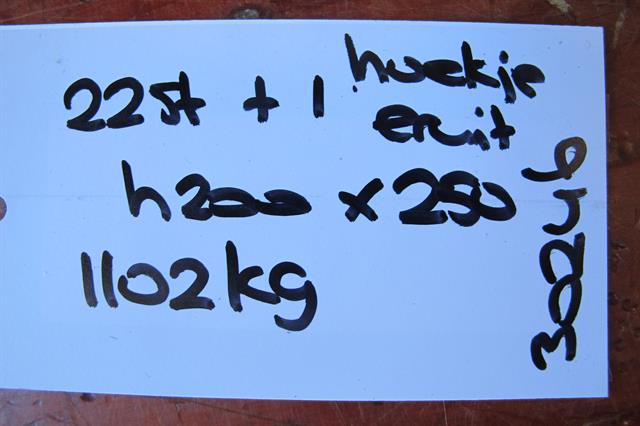 22st + 1 hoekje
eruit
h200 x 250
1102kg
30246